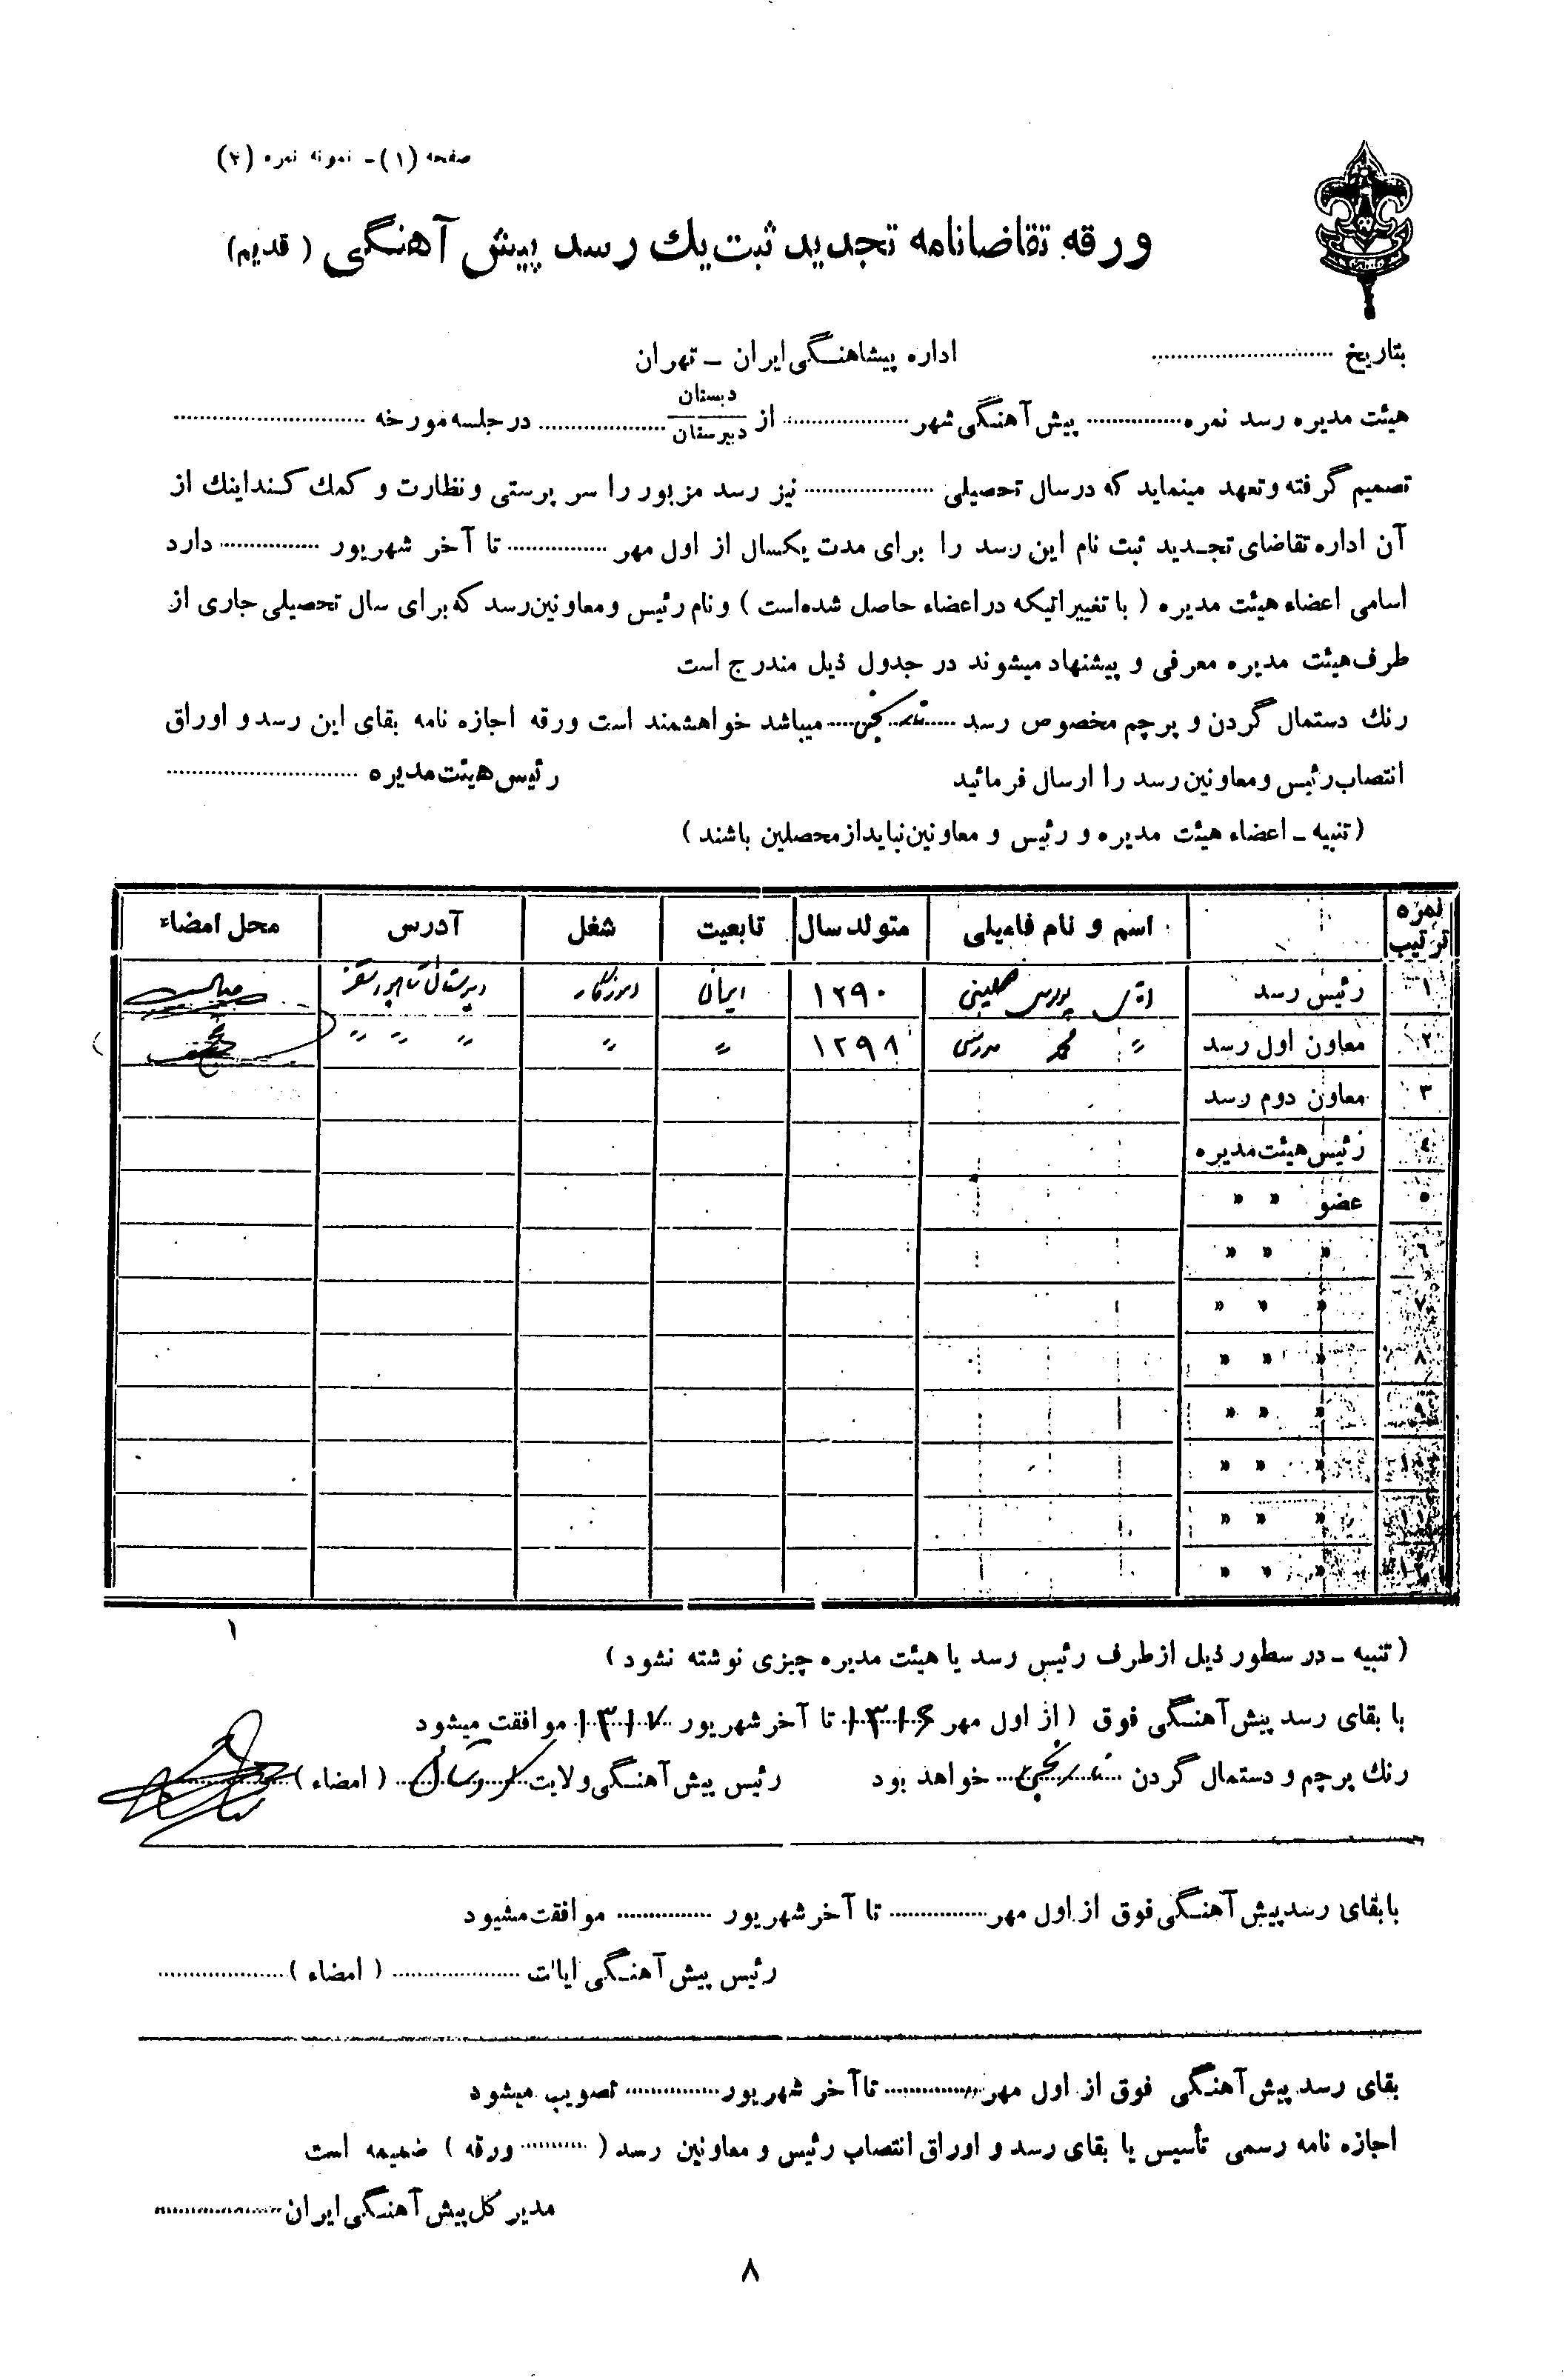 صفحه (۱) - نمونه نمره (۲)
ورقه تقاضانامه تجدید ثبت یك رسد پیش آهنگی (قدیم)
بتاریخ ............................ اداره پیشاهنگی ایران - تهران
هیئت مدیره رسد نمره............... پیش آهنگی شهر.................... از دبستان / دبیرستان .................... در جلسه مورخه ..............................
تصمیم گرفته و تعهد مینماید که در سال تحصیلی ..................... نیز رسد مزبور را سر پرستی و نظارت و کمك کند اینك از
آن اداره تقاضای تجدید ثبت نام این رسد را برای مدت یکسال از اول مهر ................ تا آخر شهریور ................ دارد
اسامی اعضاء هیئت مدیره ( با تغییراتیکه در اعضاء حاصل شده‌است ) و نام رئیس و معاونین رسد که برای سال تحصیلی جاری از
طرف هیئت مدیره معرفی و پیشنهاد میشوند در جدول ذیل مندرج است
رنك دستمال گردن و پرچم مخصوص رسد ........ میباشد خواهشمند است ورقه اجازه نامه بقای این رسد و اوراق
انتصاب رئیس و معاونین رسد را ارسال فرمائید رئیس هیئت مدیره ..............................
(تنبیه - اعضاء هیئت مدیره و رئیس و معاونین نباید از محصلین باشند )
نمره ترتیب اسم و نام فامیلی متولد سال تابعیت شغل آدرس محل امضاء
۱ رئیس رسد آقای ۱۲۹۰ ایران آموزگار دبیرستان
۲ معاون اول رسد " محمد مدرسی ۱۲۹۸ " " " " "
۳ معاون دوم رسد
٤ رئیس هیئت مدیره
٥ عضو » »
٦ » » »
۷ » » »
۸ » » »
۹ » » »
۱۰ » » »
۱۱ » » »
۱۲ » » »
۱
(تنبیه - در سطور ذیل از طرف رئیس رسد یا هیئت مدیره چیزی نوشته نشود )
با بقای رسد پیش آهنگی فوق ( از اول مهر ۱۳۱۶ تا آخر شهریور ۱۳۱۷ موافقت میشود
رنك پرچم و دستمال گردن ........ خواهد بود رئیس پیش آهنگی ولایت کردستان ( امضاء )
بابقای رسد پیش آهنگی فوق از اول مهر................ تا آخر شهریور ................ موافقت مشیود
رئیس پیش آهنگی ایالت ..................... ( امضاء )......................
بقای رسد پیش آهنگی فوق از اول مهر................ تا آخر شهریور................ تصویب میشود
اجازه نامه رسمی تأسیس یا بقای رسد و اوراق انتصاب رئیس و معاونین رسد ( ........... ورقه ) ضمیمه است
مدیر کل پیش آهنگی ایران.....................
۸